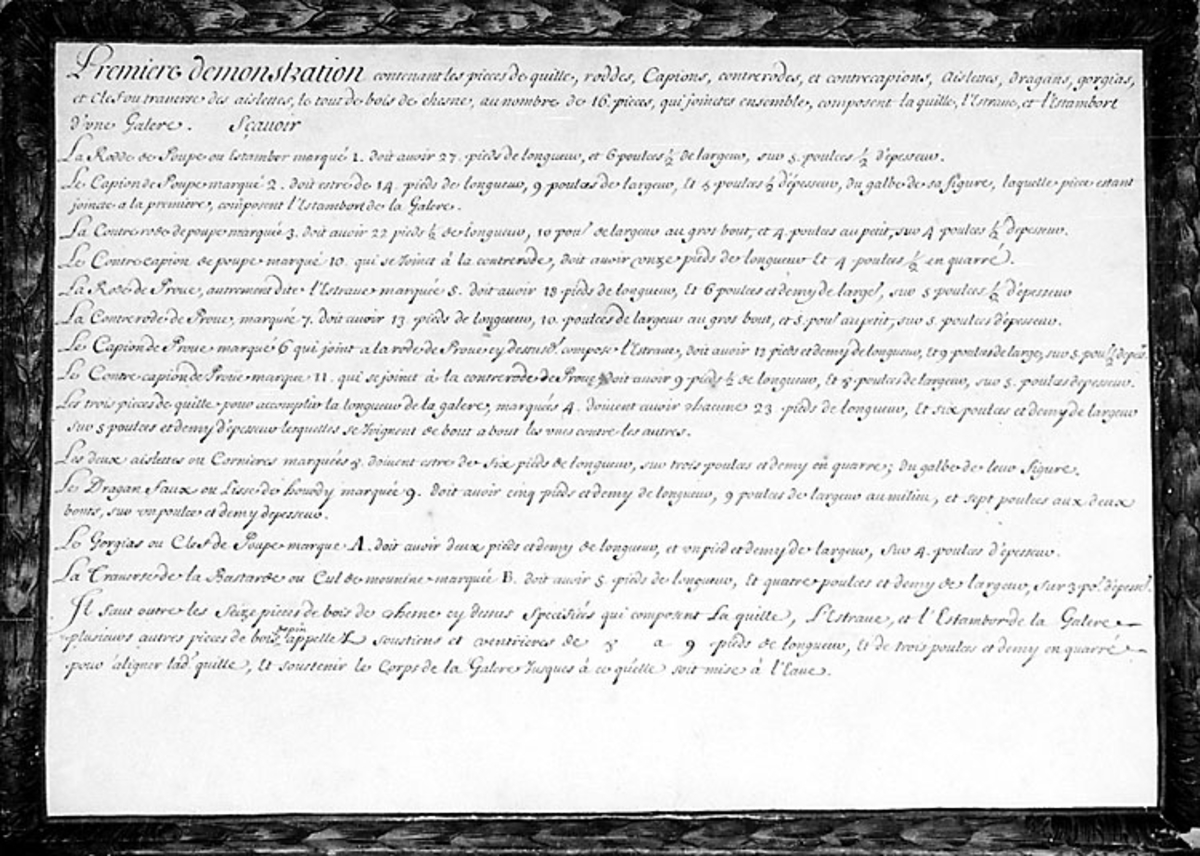 Premiere demonstration contenant les pieces de quille, roddes, Capions, contrerodes, et contrecapions, Aislettes, dragans, gorgias,
et Clef ou traverse des aislettes, le tout de bois de chesne, au nombre de 16. pieces, qui joinctes ensemble, composent la quille, l'Estrave, et l'Estambort
d'une Galere. Sçavoir
La Rodde de Poupe ou Estambor marqué 1. doit avoir 27. pieds de longueur, et 6 poulces ½ de largeur, sur 5. poulces ½ d'epesseur.
Le Capion de Poupe marqué 2. doit estre de 14. pieds de longueur, 9 poulces de largeur, Et 5 poulces ½ d'épesseur, du galbe de sa figure, laquelle piece estant
joincte a la premiere, composent l'Estambort de la Galere.
La Contrerode de poupe marqué 3. doit avoir 22 pieds ½ de longueur, 10 poul. de largeur au gros bout, et 4. poulces au petit, sur 4 poulces ½ d'epesseur.
Le Contrecapion de poupe marqué 10. qui se Joinct à la contrerode, doit avoir Vnze pieds de longueur Et 4 poulces ½ en quarré.
La Rode de Proue, autrement dite l'Estrave marquée 5. doit avoir 18 pieds de longueur, Et 6 poulces et demy de large, sur 5 poulces ½ d'épesseur
La Contrerode de Proue, marquée 7. doit avoir 13. pieds de longueur, 10. poulces de largeur au gros bout, et 5. poul. au petit, sur 5. poulces d'épesseur.
Le Capion de Proue marqué 6 qui joint a la rode de Proue cy dessus, compose l'Estrave, doit avoir 12 pieds et demy de longueur, Et 9 poulces de large, sur 5. poul. ½ depess.
Le Contre capion de Proüe marque 11. qui se joinct à la contrerode de Proue, doit avoir 9 pieds ½ de longueur, et 8 poulces de largeur, sur 5. poulces depesseur.
Les trois pieces de quille pour accomplir la longueur de la galere, marqués 4. doivent avoir chacune 23 pieds de longueur, Et six poulces et demy de largeur
sur 5 poulces et demy d'épesseur lesquelles se Joignent de bout a bout les unes contre les autres.
Les deux aislettes ou Cornieres marquées 8. doivent estre de Six pieds de longueur, sur trois poulces et demy en quarre; du galbe de leur figure.
Le Dragan faux ou Lisse de hourdy marquée 9. doit avoir cinq pieds et demy de longueur, 9 poulces de largeur au milieu, et sept poulces aux deux
bouts, sur un poulce et demy depesseur.
Le Gorgias ou Clef de Poupe marque A. doit avoir deux pieds et demy de longueur, et un pied et demy de largeur, Sur 4. poulces d'épesseur.
La Traverse de la Bastarde ou Cul de mounine marquée B. doit avoir 5. pieds de longueur, Et quatre poulces et demy de largeur, sur 3 po. d'épess.
Il faut outre les Seize pieces de bois de chesne cy dessus Specifiées qui composent La quille, L'Estrave, et l'Estambor de la Galere
plusieurs autres pieces de bois de sapin appellé L soustiens et ventrieres de 8 a 9 pieds de longueur, Et de trois poulces et demy en quarré
pour aligner lad. quille, Et soustenir le Corps de la Galere Jusques à ce qu'elle soit mise à l'eaue.